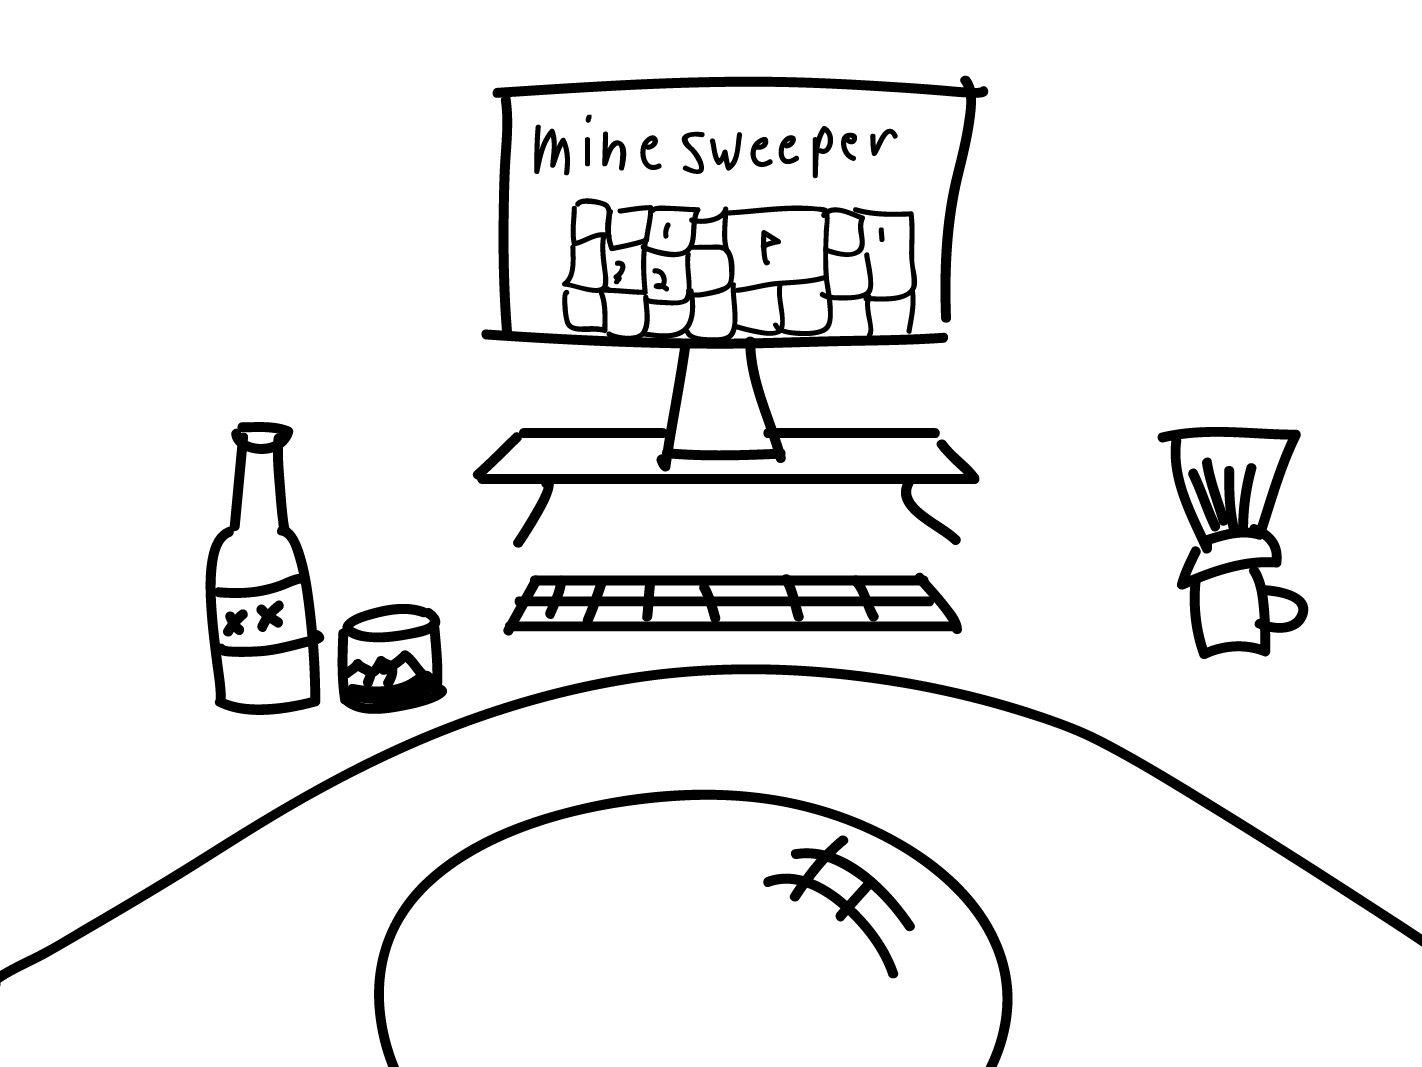 minesweeper
1 1
? 2
XX